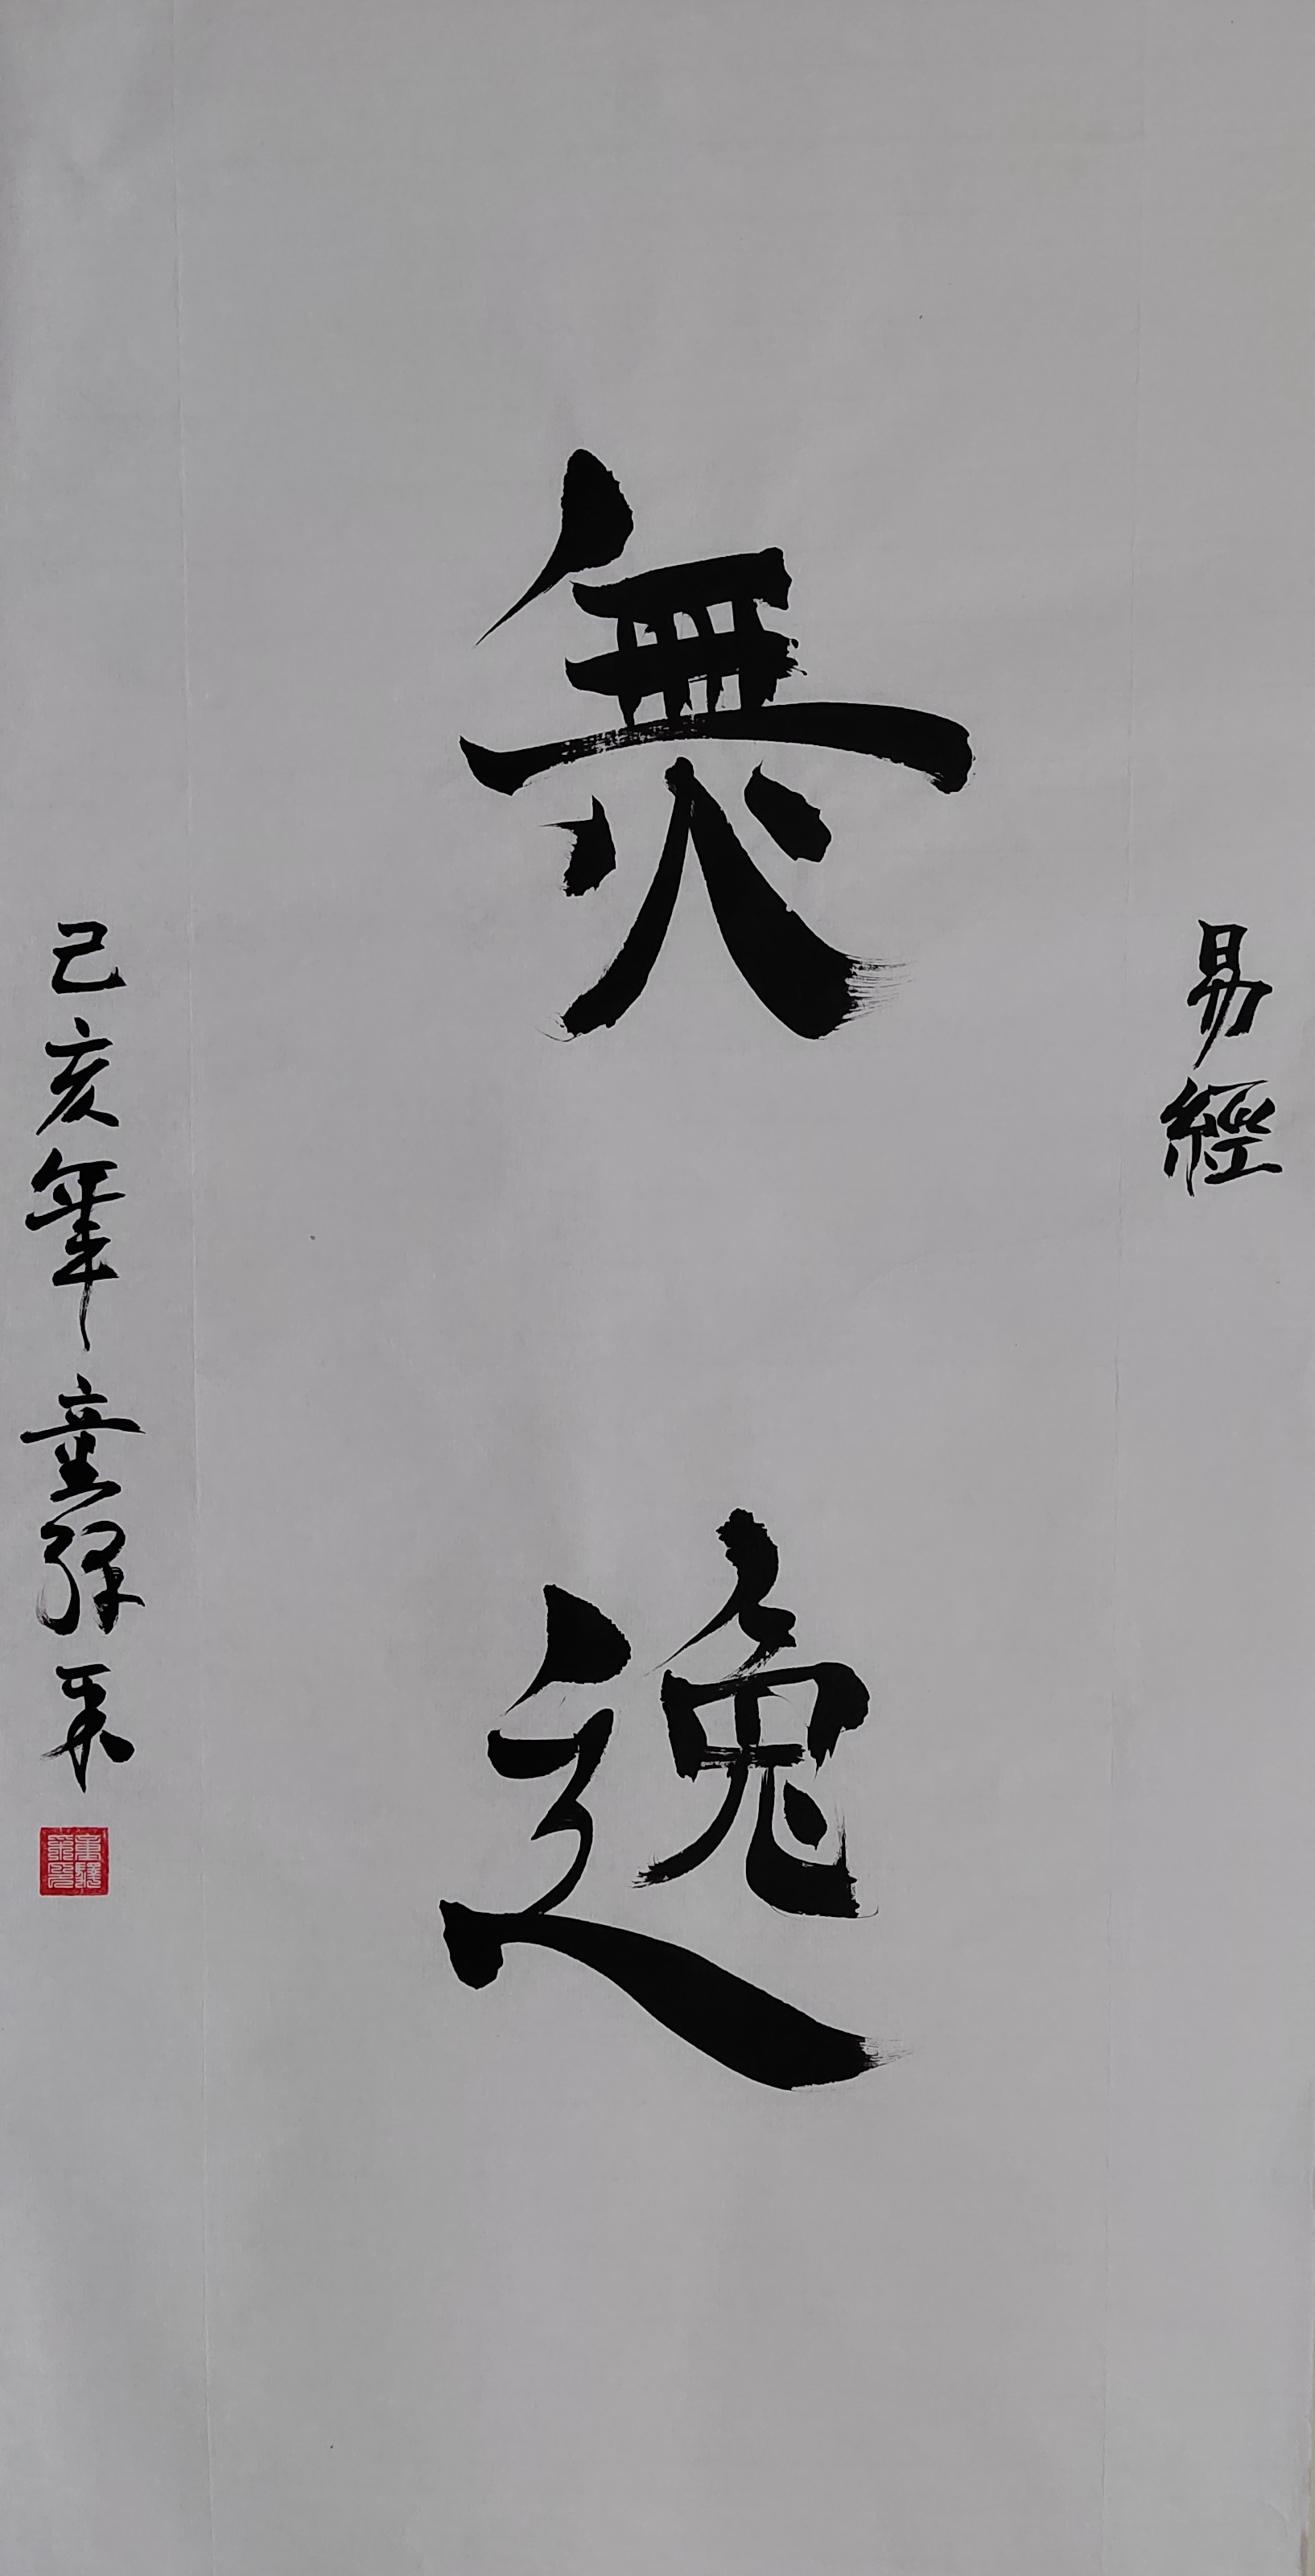 易經
無逸
己亥年童驛采